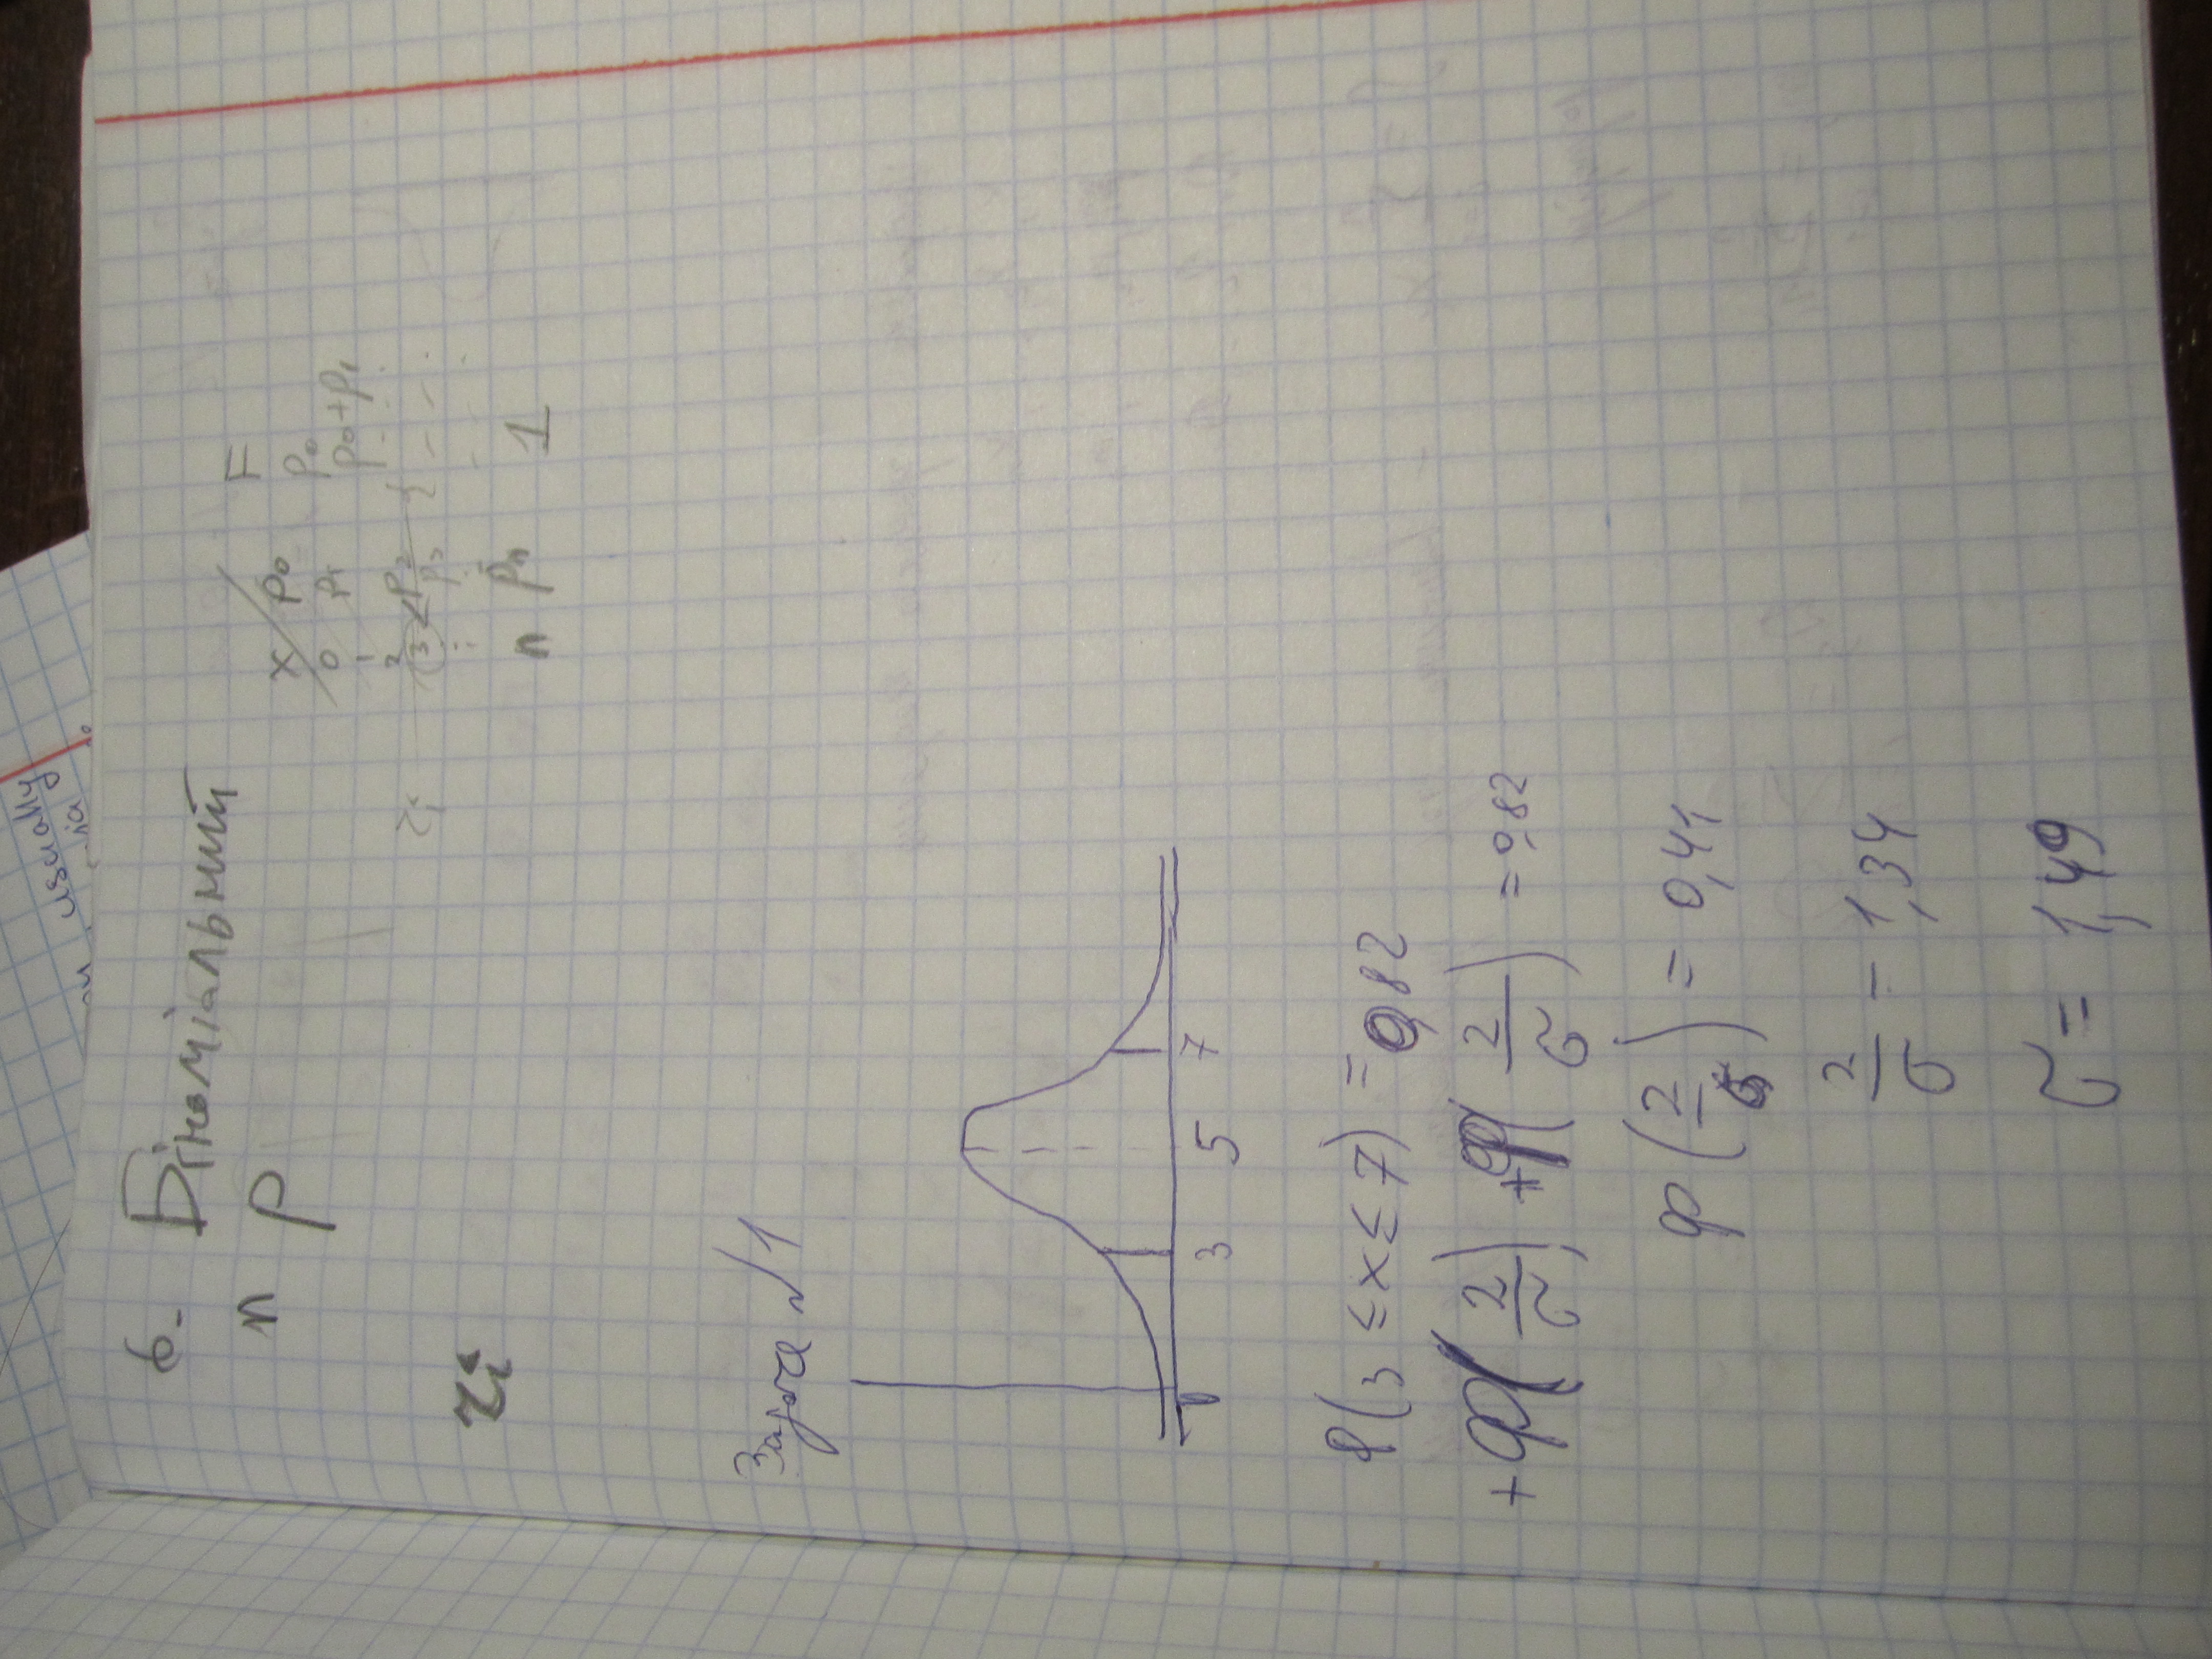 usually
6. Біноміальний
n p
x p₀ F
0 p₁ p₀
1 p₀+p₁
2 p₂ . . .
rᵢ 3 < p₃ { - - - .
: : - - - .
n pₙ 1
rᵢ
Задача №1
0 3 5 7
P(3 ≤ x ≤ 7) = 0,82
+ Ф(2/σ) + Ф(2/σ) = 0,82
Ф(2/σ) = 0,41
2/σ = 1,34
σ = 1,49